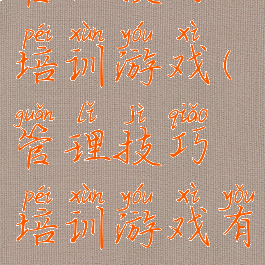 péi xùn yóu xì
培训游戏(
guǎn lǐ jì qiǎo
管理技巧
péi xùn yóu xì yǒu
培训游戏有